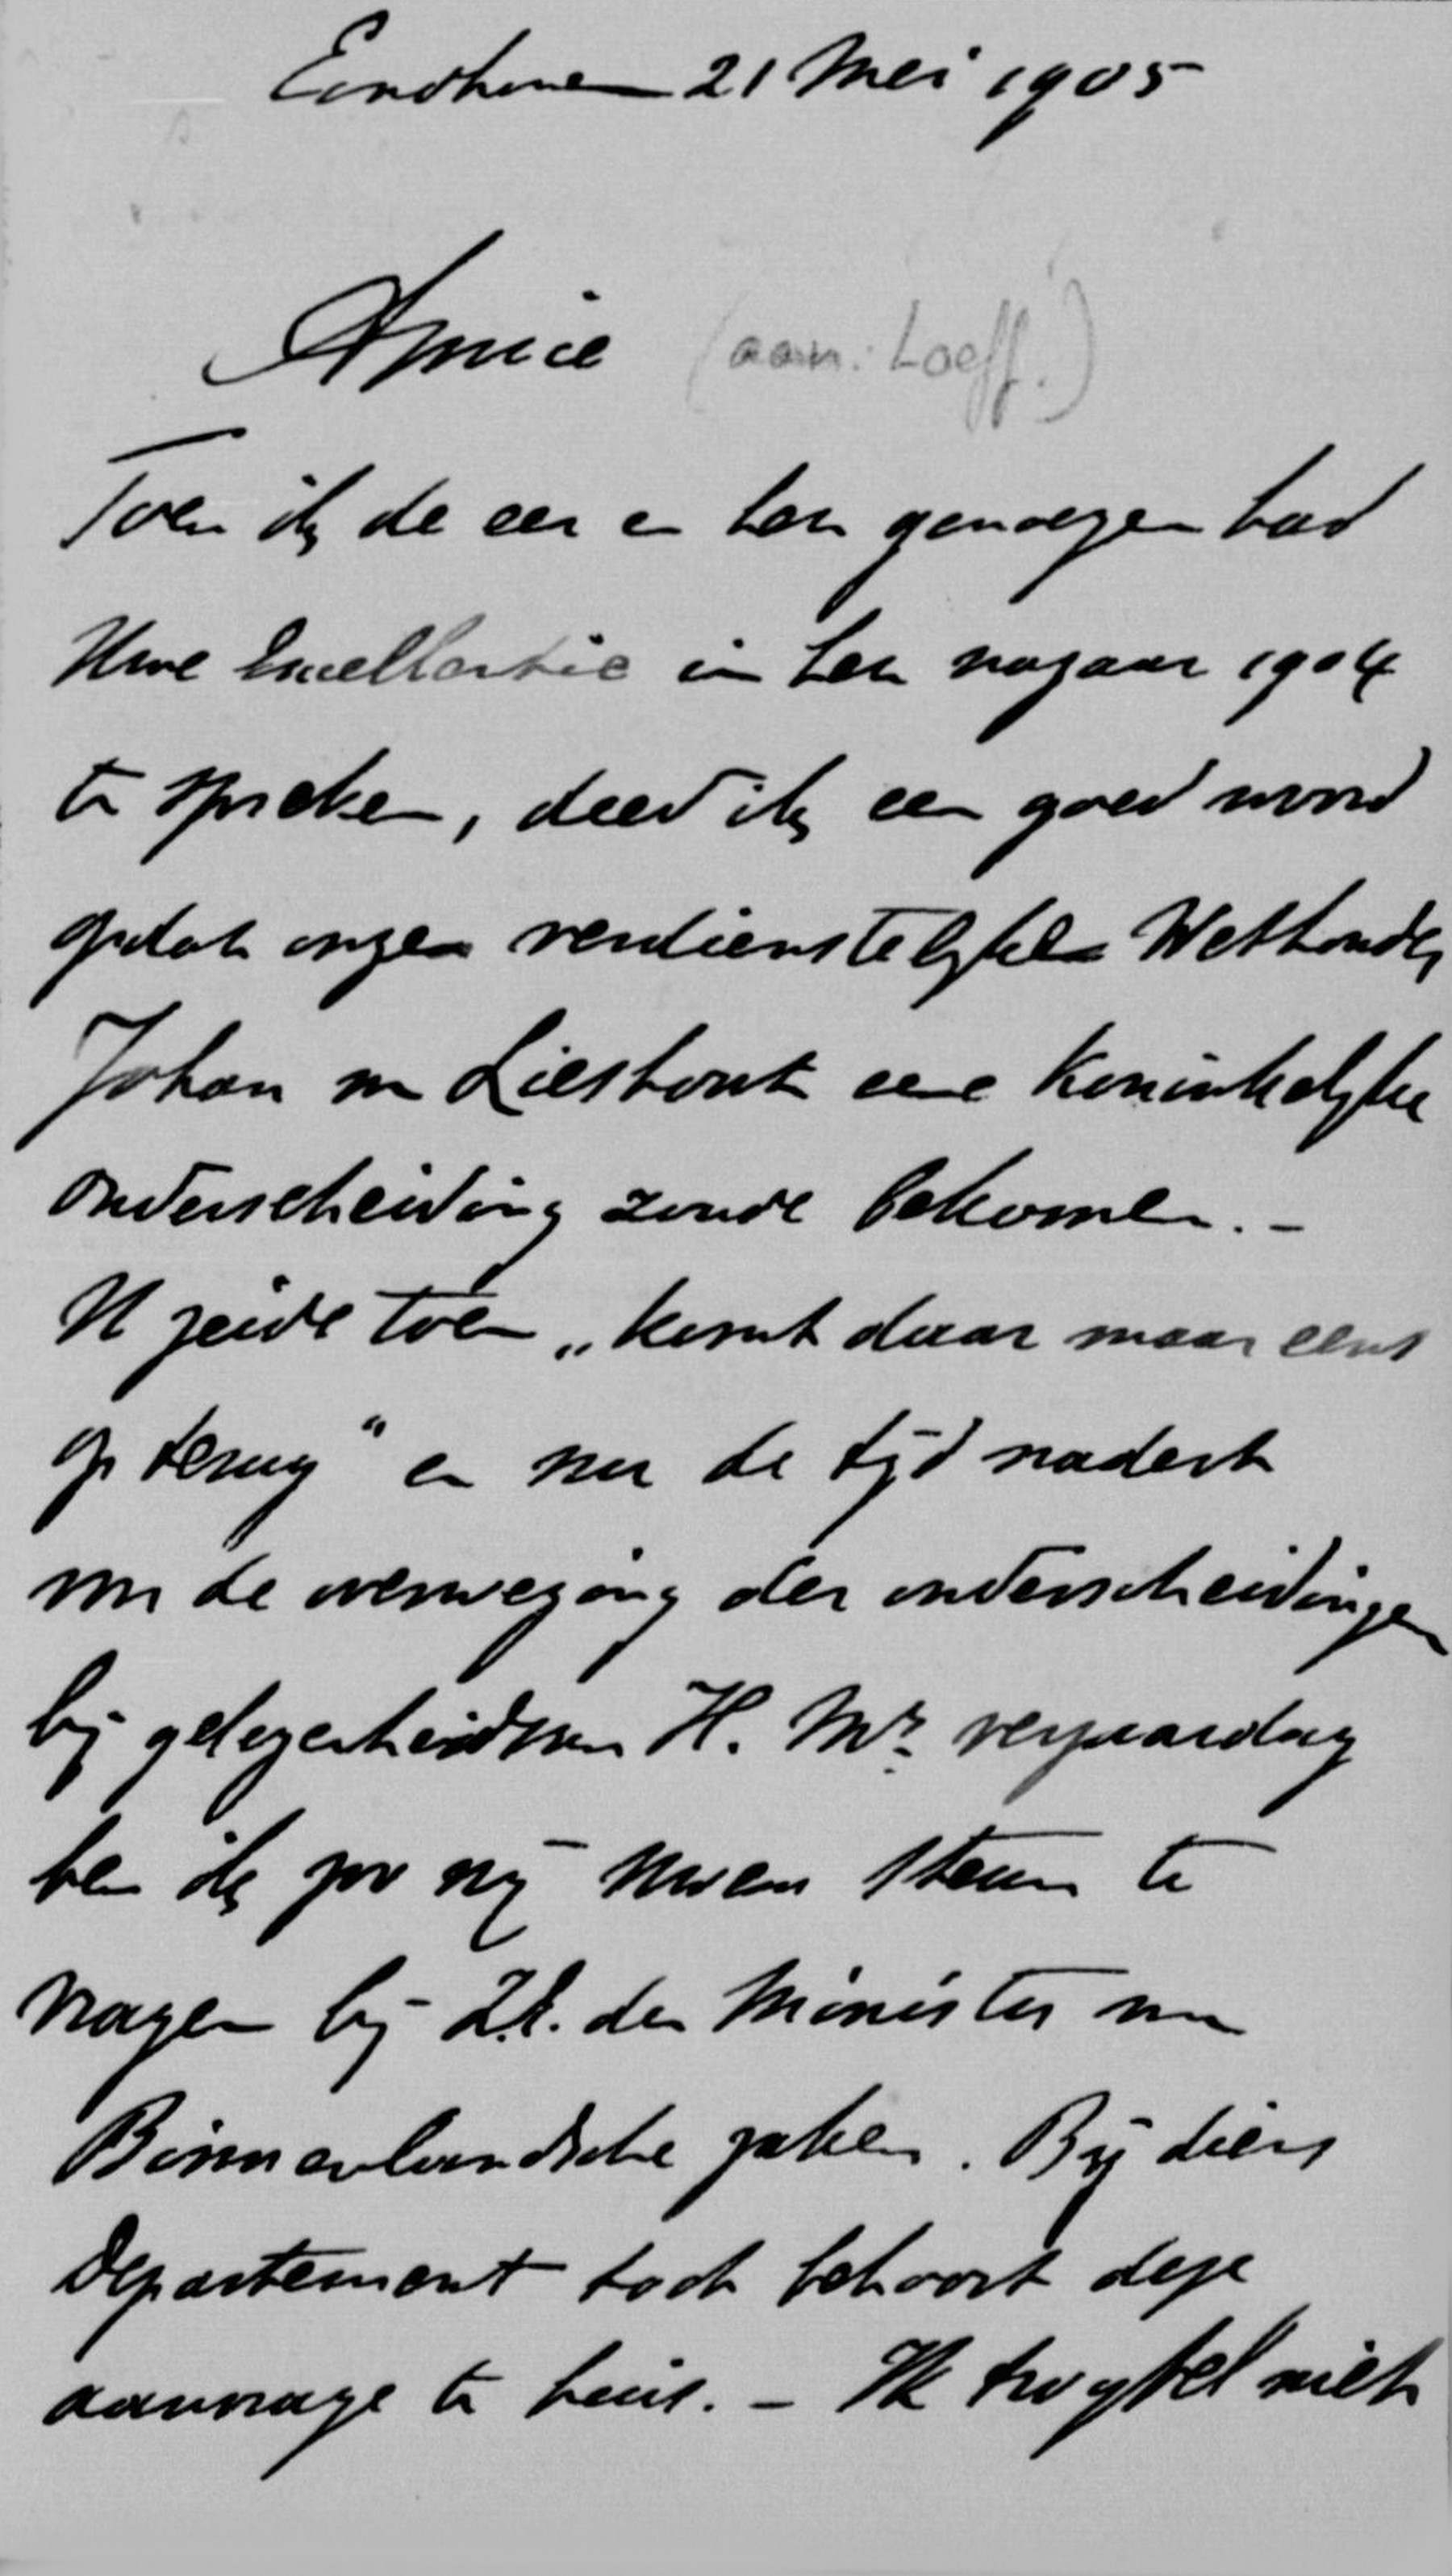 Eindhoven 21 Mei 1905
Amice (aan: Loeff.)
Toen ik de eer en het genoegen had
Uwe Excellentie in het najaar 1904
te spreken, deed ik een goed woord
opdat onzen verdienstelyken Wethouder
Johan van Lieshout eene Koninkelyke
onderscheiding zoude bekomen. -
U zeide toen „komt daar maar eens
op terug" en nu de tijd nadert
van de overweging der onderscheidingen
bij gelegenheid van H. Ms. verjaardag
ben ik zoo vrij Uwen steun te
vragen bij Z.E. den Minister van
Binnenlandsche zaken. Bij diens
Departement toch behoort deze
aanvrage te huis. - Ik twyfel niet